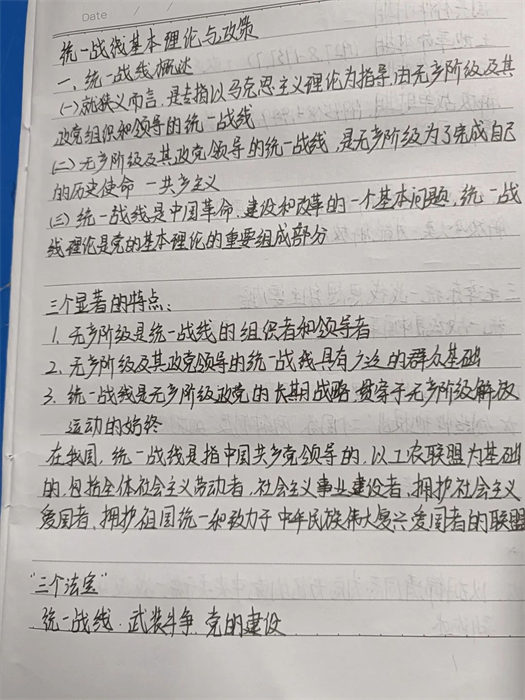 Date
统一战线基本理论与政策
一、统一战线概述
(一)就狭义而言,是专指以马克思主义理论为指导,由无产阶级及其
政党组织和领导的统一战线
(二)无产阶级及其政党领导的统一战线,是无产阶级为了完成自己
的历史使命 一共产主义
(三)统一战线是中国革命、建设和改革的一个基本问题,统一战
线理论是党的基本理论的重要组成部分
三个显著的特点:
1. 无产阶级是统一战线的组织者和领导者
2. 无产阶级及其政党领导的统一战线具有广泛的群众基础
3. 统一战线是无产阶级政党的长期战略,贯穿于无产阶级解放
运动的始终
在我国,统一战线是指中国共产党领导的,以工农联盟为基础
的,包括全体社会主义劳动者,社会主义事业建设者,拥护社会主义
爱国者,拥护祖国统一和致力于中华民族伟大复兴爱国者的联盟
"三个法宝"
统一战线、武装斗争、党的建设